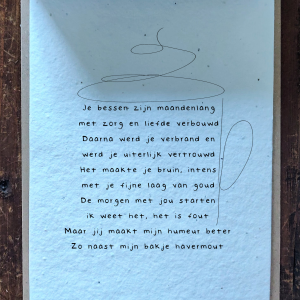 Je bessen zijn maandenlang
met zorg en liefde verbouwd
Daarna werd je verbrand en
werd je uiterlijk vertrouwd
Het maakte je bruin, intens
met je fijne laag van goud
De morgen met jou starten
ik weet het, het is fout
Maar jij maakt mijn humeur beter
Zo naast mijn bakje havermout